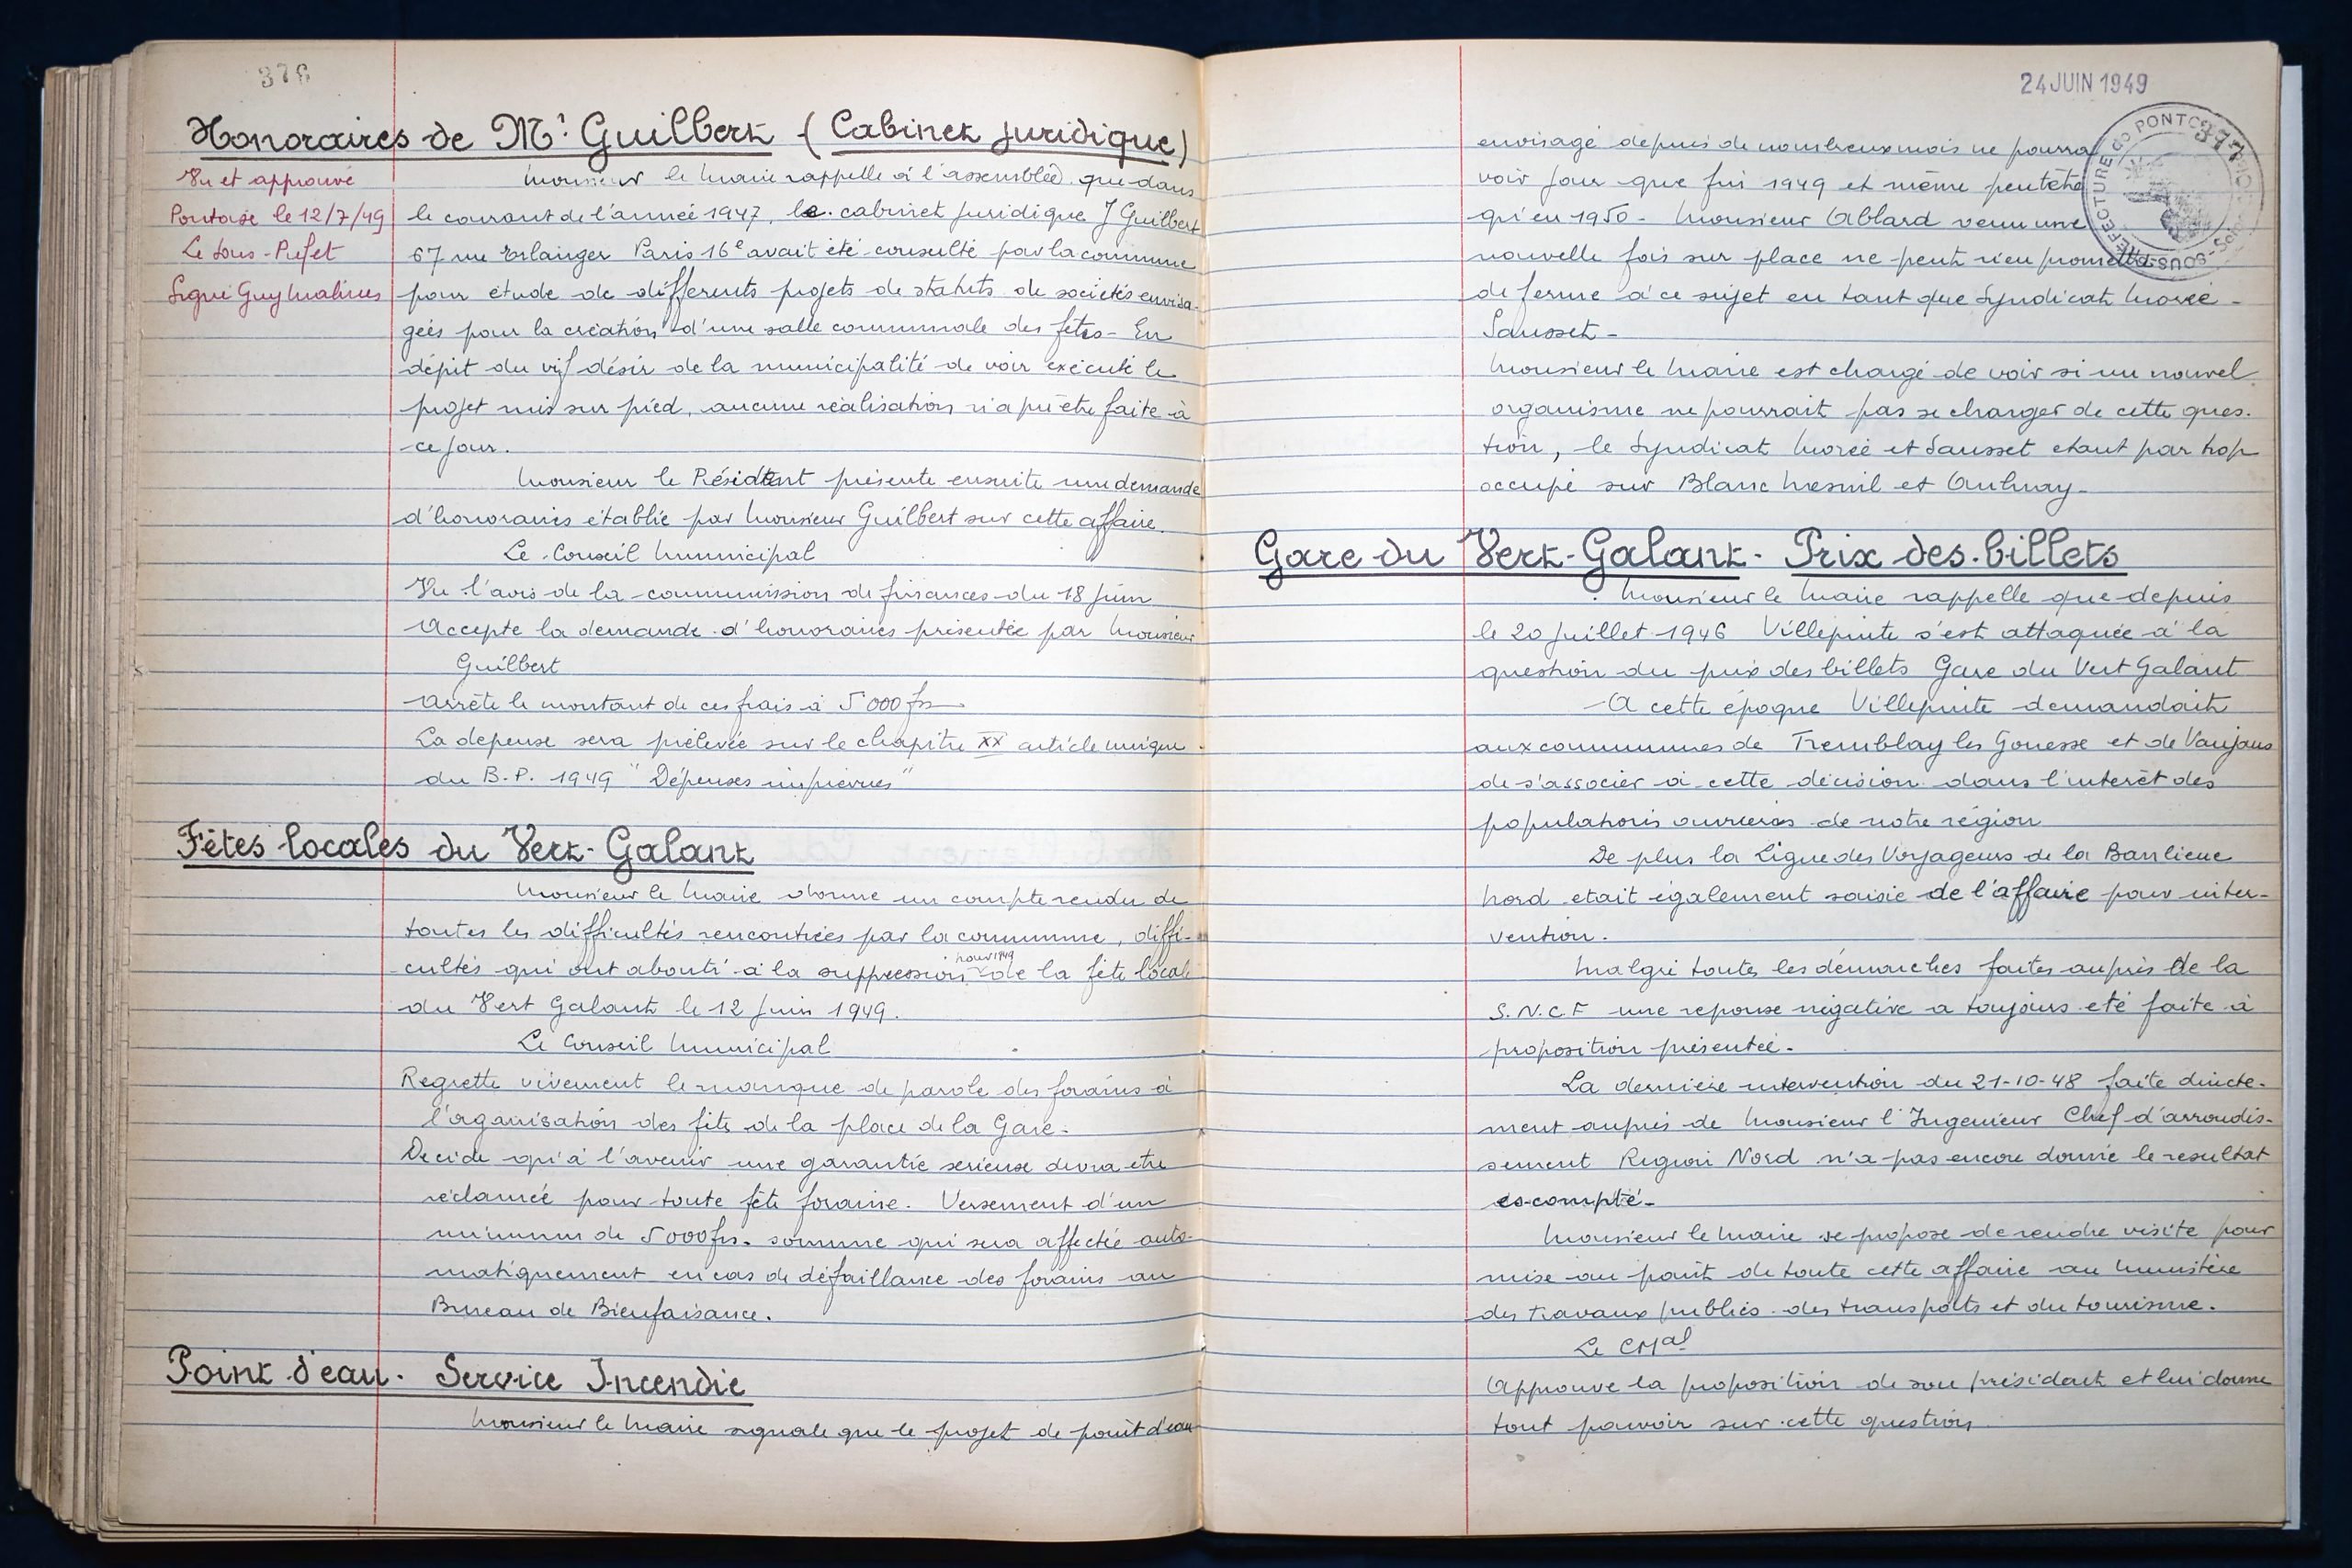 376
Honoraires de Mr Guilbert (Cabinet juridique)
Vu et approuvé
Pontoise le 12/7/49
Le Sous-Préfet
Signé Guy Malines
Monsieur le Maire rappelle à l'assemblée que dans
le courant de l'année 1947, le cabinet juridique J Guilbert
67 rue Erlanger Paris 16e avait été consulté par la commune
pour étude de différents projets de statuts de sociétés envisa-
gées pour la création d'une salle communale des fêtes - En
dépit du vif désir de la municipalité de voir exécuté le
projet mis sur pied, aucune réalisation n'a pu être faite à
ce jour.
Monsieur le Président présente ensuite une demande
d'honoraires établie par Monsieur Guilbert sur cette affaire.
Le Conseil Municipal
Vu l'avis de la commission de finances du 18 juin
Accepte la demande d'honoraires présentée par Monsieur
Guilbert
Arrête le montant de ces frais à 5000 frs
La depense sera prélevée sur le chapitre XX article unique
du B.P. 1949 "Dépenses imprévues"
Fêtes locales du Vert-Galant
Monsieur le Maire donne un compte rendu de
toutes les difficultés rencontrées par la commune, diffi-
cultés qui ont abouti à la suppression pour 1949 de la fête locale
du Vert Galant le 12 Juin 1949.
Le Conseil Municipal
Regrette vivement le manque de parole des forains à
l'organisation des fêtes de la place de la Gare.
Decide qu'à l'avenir une garantie serieuse devra etre
réclamée pour toute fête foraine. Versement d'un
minimum de 5000 frs. somme qui sera affectée auto-
matiquement en cas de défaillance des forains au
Bureau de Bienfaisance.
Point d'eau. Service Incendie
Monsieur le Maire signale que le projet de point d'eau
24 JUIN 1949
377
SOUS-PREFECTURE de PONTOISE
envisagé depuis de nombreux mois ne pourra
voir jour que fin 1949 et même peutetre
qu'en 1950 - Monsieur Ablard venu une
nouvelle fois sur place ne peut rien promettre
de ferme à ce sujet en tant que Syndicat Morée -
Sausset -
Monsieur le Maire est chargé de voir si un nouvel
organisme ne pourrait pas se charger de cette ques-
tion, le Syndicat Morée et Sausset etant par trop
occupé sur Blanc Mesnil et Aulnay -
Gare du Vert-Galant - Prix des billets
Monsieur le Maire rappelle que depuis
le 20 Juillet 1946 Villepinte s'est attaquée à la
question du prix des billets Gare du Vert Galant
A cette époque Villepinte demandait
aux communes de Tremblay les Gonesse et de Vaujours
de s'associer à cette décision dans l'interêt des
populations ouvrières de notre région
De plus la Ligue des Voyageurs de la Banlieue
Nord etait également saisie de l'affaire pour inter-
vention.
Malgré toutes les démarches faites auprès de la
S.N.C.F une reponse négative a toujours eté faite à
proposition présentée.
La dernière intervention du 21-10-48 faite directe-
ment auprès de Monsieur l'Ingenieur Chef d'arrondis-
sement Region Nord n'a pas encore donné le resultat
escompté -
Monsieur le Maire se propose de rendre visite pour
mise au point de toute cette affaire au Ministère
des travaux publics des transports et du tourisme.
Le CMal
Approuve la proposition de son président et lui donne
tout pouvoir sur cette question